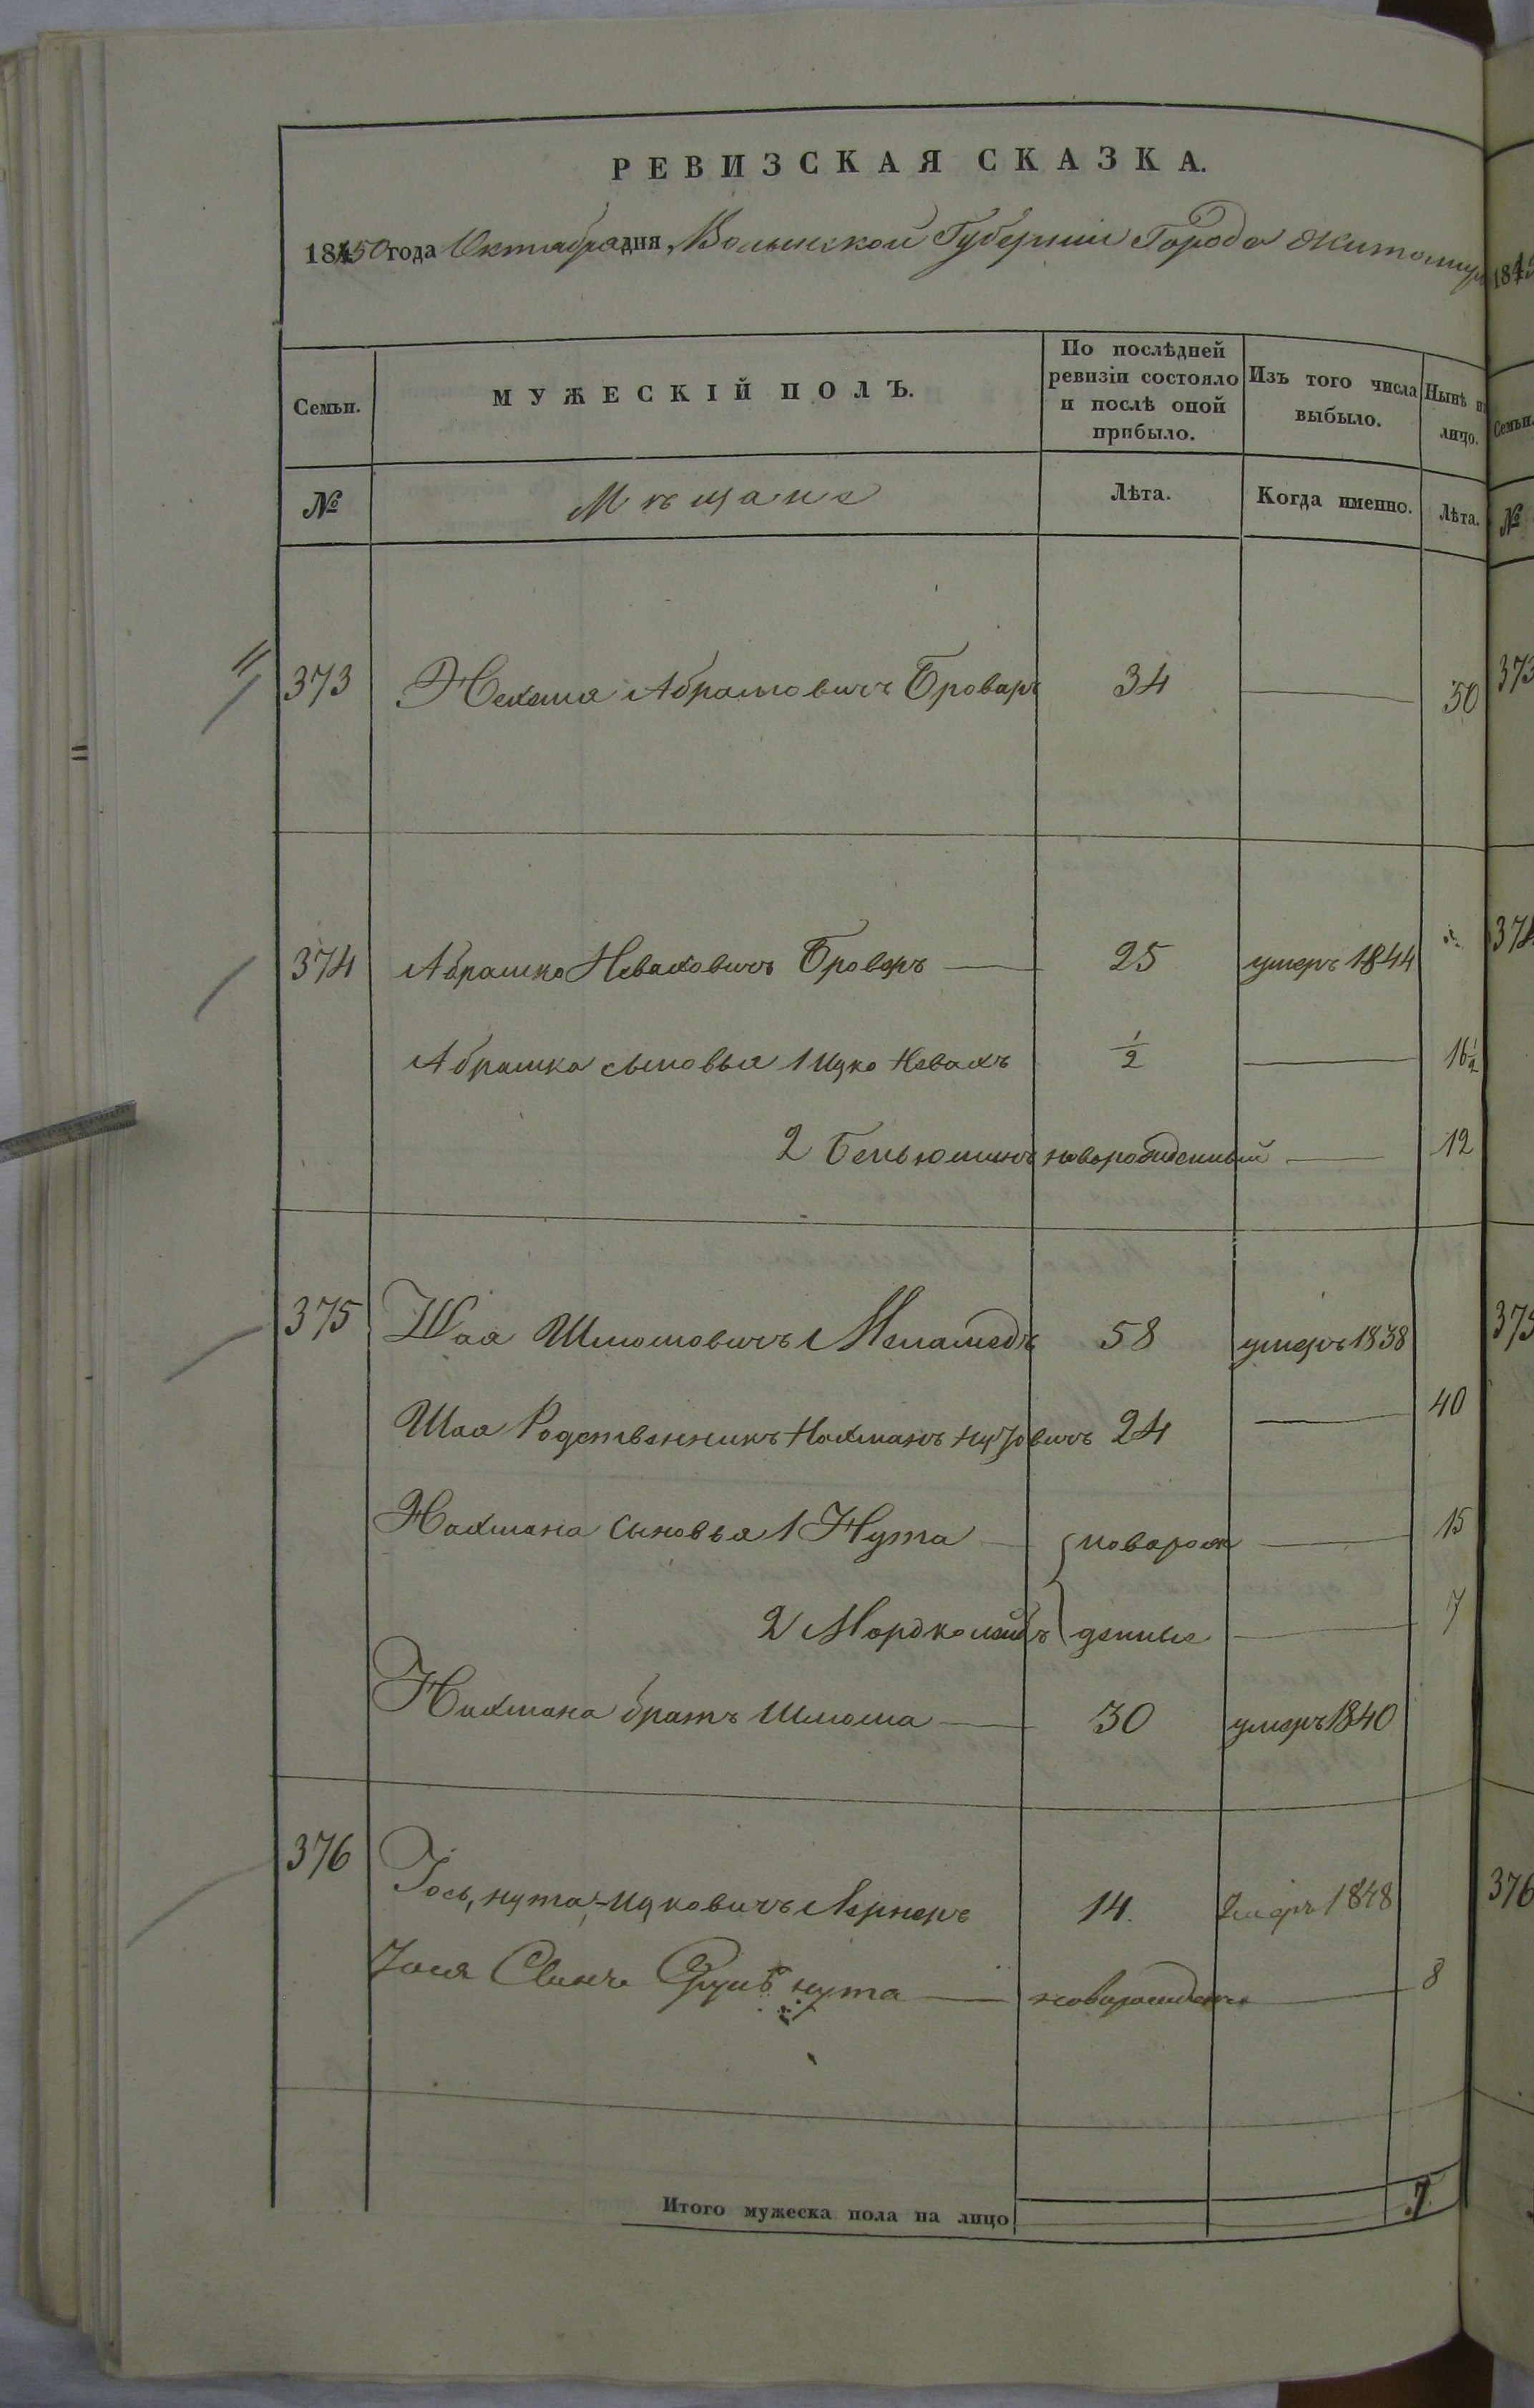 РЕВИЗСКАЯ СКАЗКА.
1850 года Октября дня, Волынской Губернии Города Житомира
Семьи. МУЖЕСКІЙ ПОЛЪ. По послѣдней ревизіи состояло и послѣ оной прибыло. Изъ того числа выбыло. Нынѣ на лицо.
№ Мѣщане Лѣта. Когда именно. Лѣта.
373 Абрамовичъ Броваръ 34 — 50
374 Абрашко Невахович Броваръ — 25 умеръ 1844
Абрашка сыновья 1 Ицко Невахъ ½ — 16½
2 Беньюминъ новорожденный — 12
375 Шая Шмомовичъ Меламедъ 58 умеръ 1838
Шая Родственникъ Нахманъ Нутовичъ 24 — 40
Нахмана сыновья 1 Нута — новорож — 15
2 Мордколейбъ денные — 7
Нахмана братъ Шмома — 30 умеръ 1840
376 Іось, нута-Ицковичъ Лернеръ 14. умеръ 1848
Іося Сынъ нута — новорожден — 8
Итого мужеска пола на лицо 7